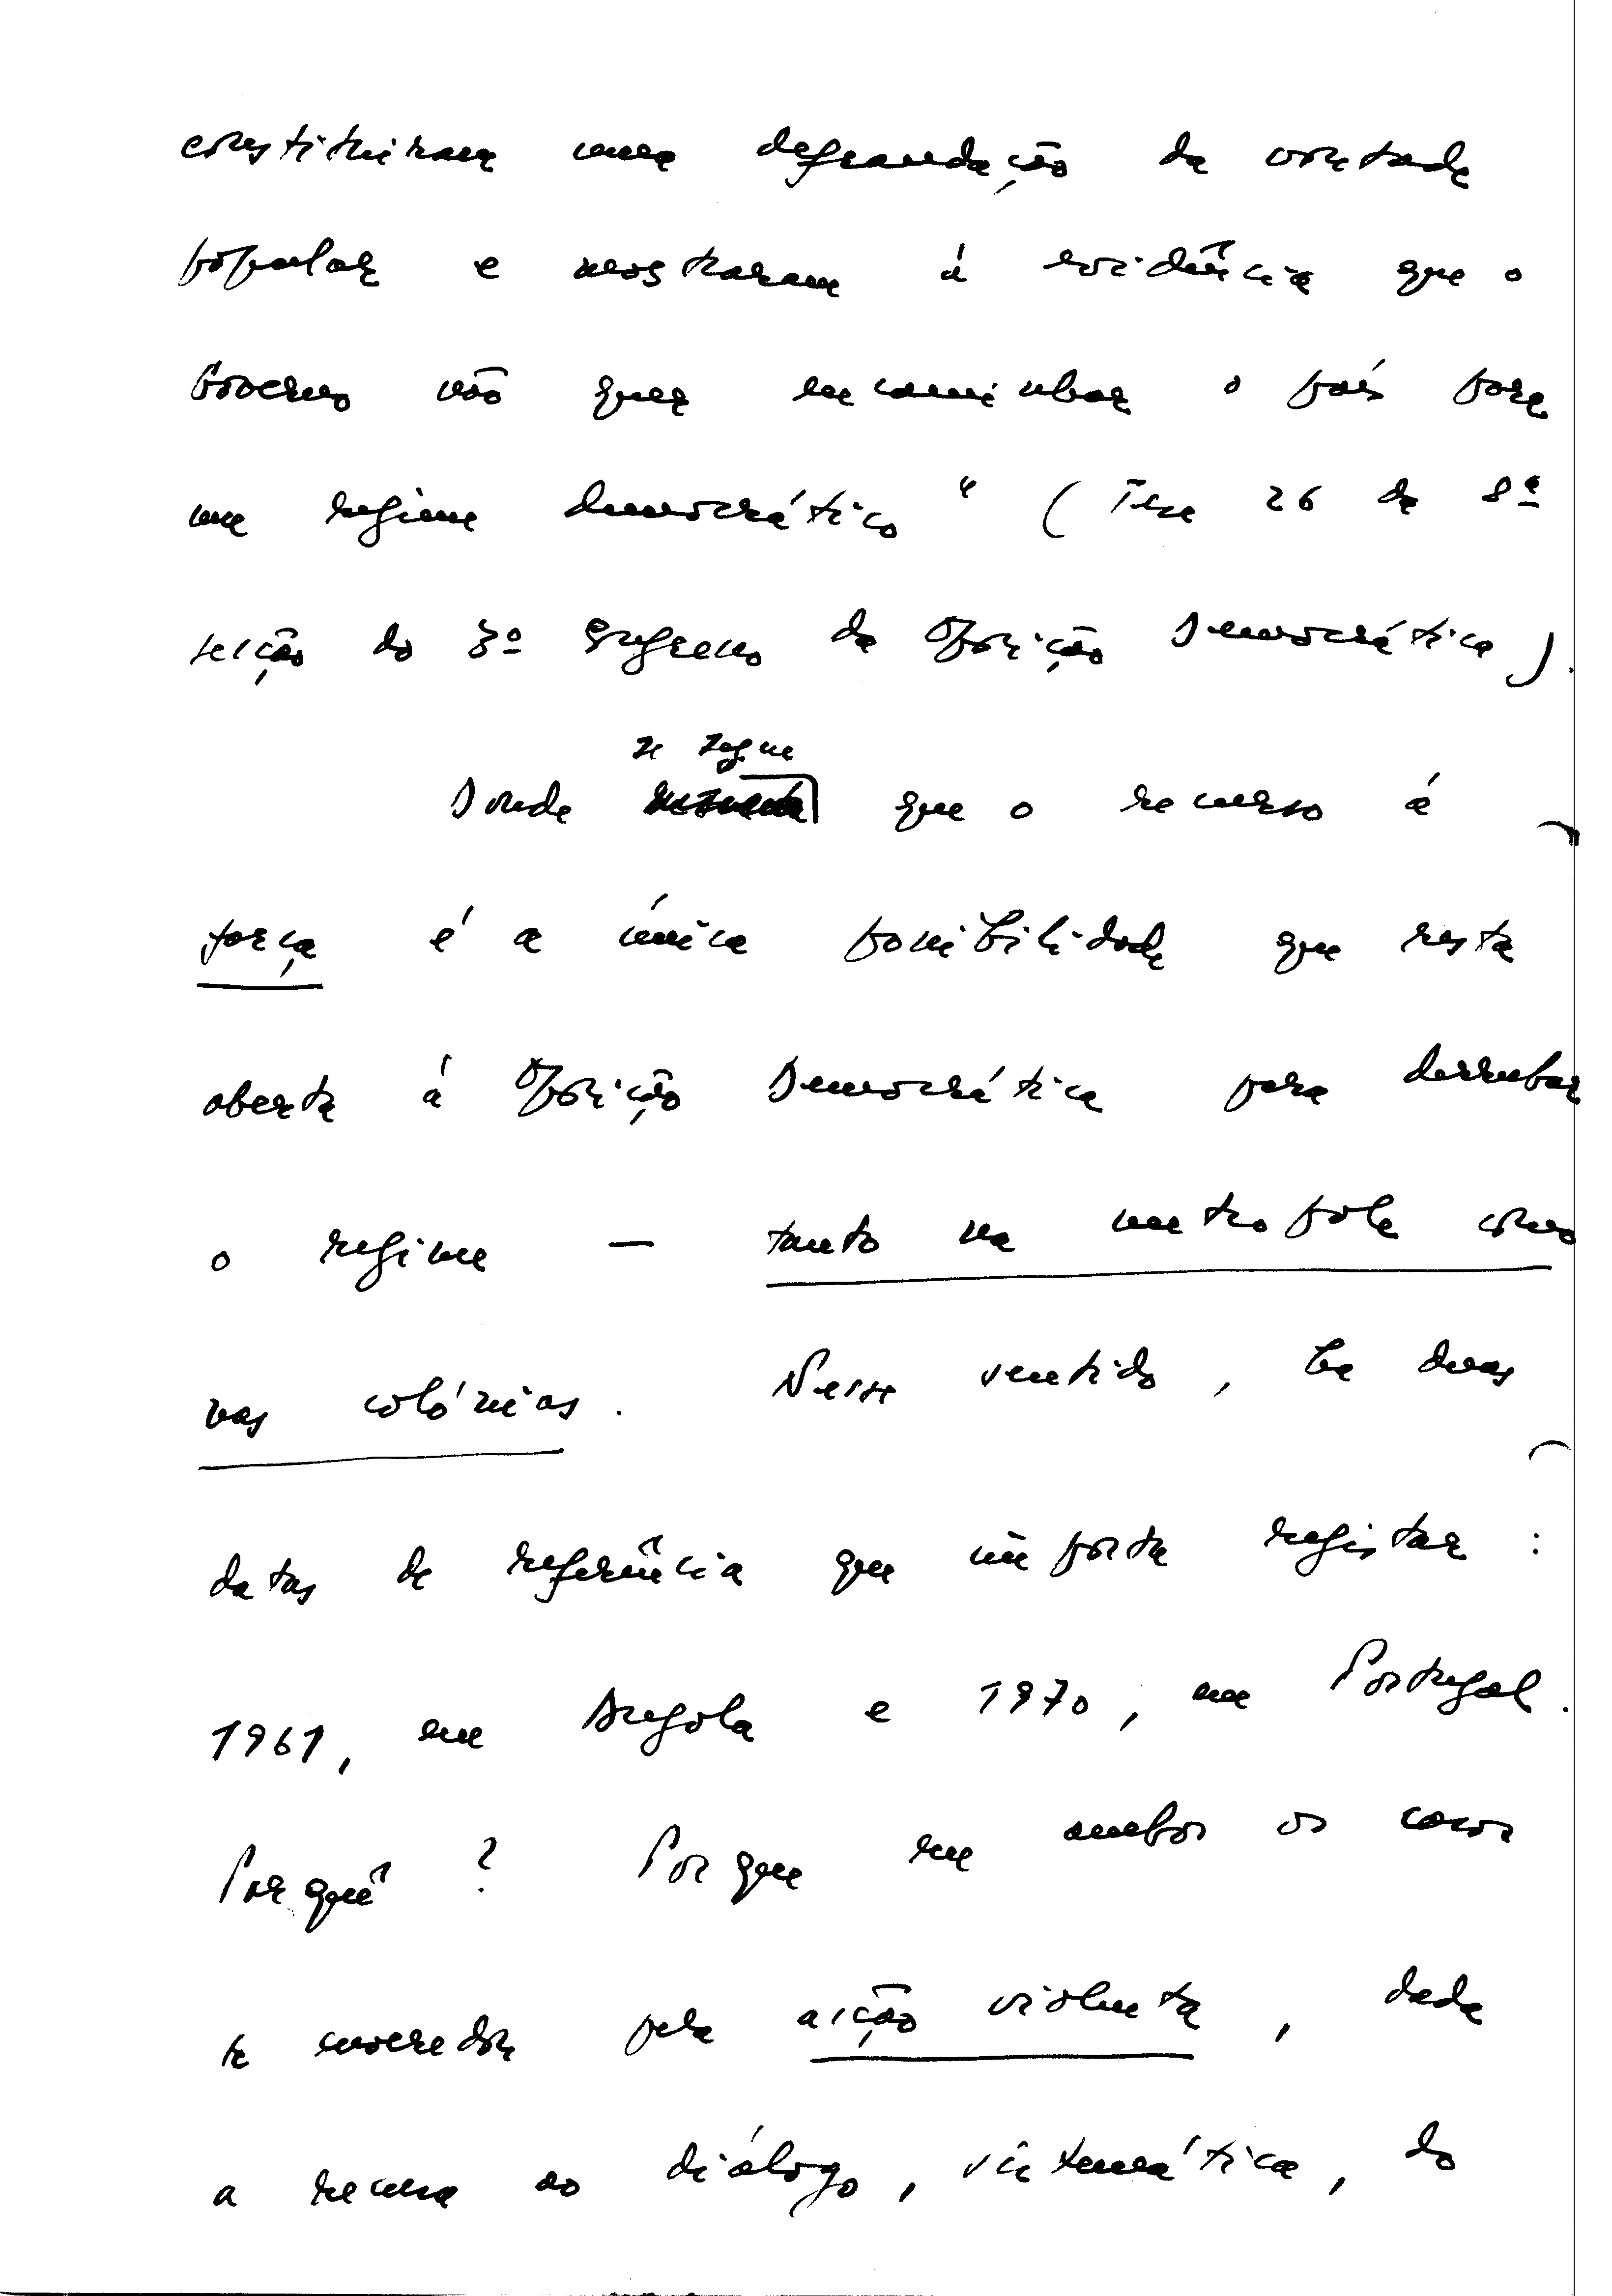 constituiram uma defraudação da vontade
popular e mostraram à evidência que o
Governo não quer encaminhar o país para
um regime democrático" (Tese 26 da 8ª
secção do 3º Congresso da Oposição Democrática).
se segue
Donde que o recurso à
força é a única possibilidade que resta
aberta à Oposição Democrática para derrubar
o regime — tanto na metropole como
nas colónias. Nesse sentido, há duas
datas de referência que importa registar:
1961, em Angola e 1970, em Portugal.
Porquê? Porque em ambos os casos
se enveredou pela acção violenta, dada
a recusa ao diálogo, sistemática, do